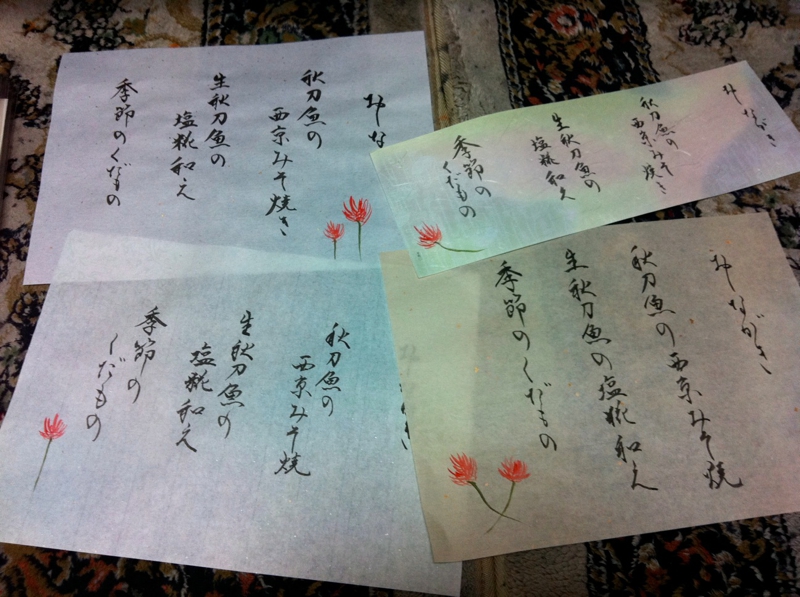 おしながき
秋刀魚の
西京みそ焼き
生秋刀魚の
塩糀和え
季節の
くだもの
おしな
秋刀魚の
西京みそ焼き
生秋刀魚の
塩糀和え
季節のくだもの
秋刀魚の
西京みそ焼
生秋刀魚の
塩糀和え
季節の
くだもの
おしながき
秋刀魚の西京みそ焼
生秋刀魚の塩糀和え
季節のくだもの